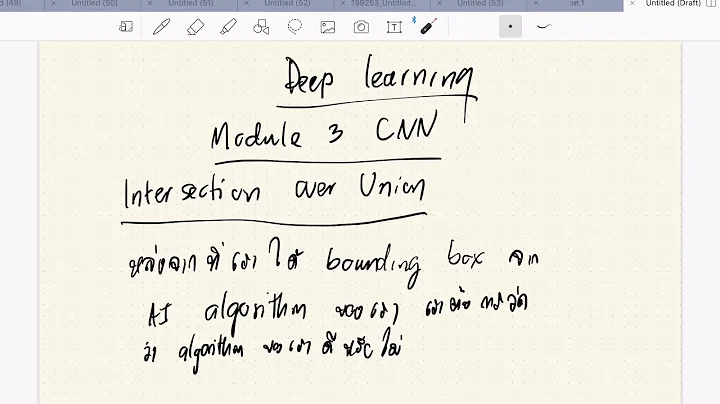 Untitled (50)
Untitled (51)
Untitled (52)
199253_Untitled...
Untitled (53)
วศ.1
Untitled (Draft)
Deep learning
Module 3 CNN
Intersection over Union
หลังจากที่เราได้ bounding box จาก
AI algorithm ของเรา เราต้องการวัด
ว่า algorithm ของเราดีหรือไม่